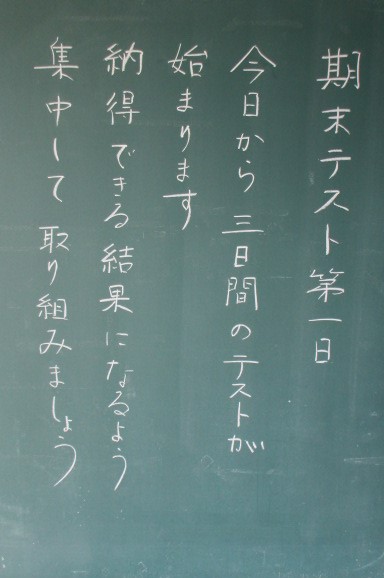 期末テスト第一日
今日から三日間のテストが
始まります
納得できる結果になるよう
集中して取り組みましょう